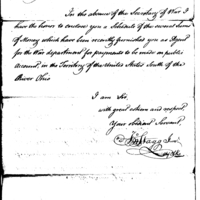 In the absence of the Secretary of War I
have the honor to enclose you a Schedule of the several sums
of Money which have been recently furnished you as Agent
for the War department for payments to be made on public
Account, in the Territory of the United States South of the
River Ohio
I am Sir,
with great esteem and respect
Your obedient Servant
Jno Stagg Junr